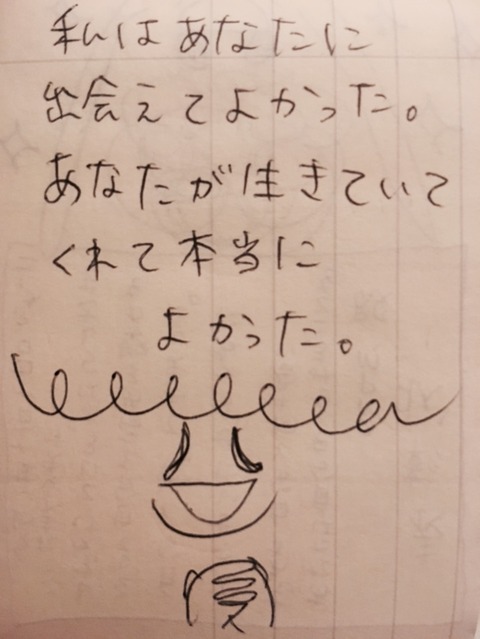 私はあなたに
出会えてよかった。
あなたが生きていて
くれて本当に
よかった。